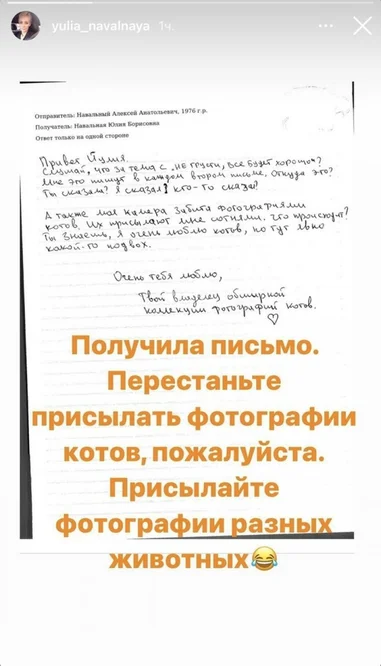 yulia_navalnaya 1ч.
Отправитель: Навальный Алексей Анатольевич, 1976 г.р.
Получатель: Навальная Юлия Борисовна
Ответ только на одной стороне
Привет Юлия.
Слушай, что за тема с „не грусти, все будет хорошо"?
Мне это пишут в каждом втором письме. Откуда это?
Ты сказала? Я сказал? Кто-то сказал?
А также моя камера забита фотографиями
котов. Их присылают мне сотнями. Что происходит?
Ты знаешь, я очень люблю котов, но тут явно
какой-то подвох.
Очень тебя люблю,
Твой владелец обширной
коллекции фотографий котов.
♡
Получила письмо.
Перестаньте
присылать фотографии
котов, пожалуйста.
Присылайте
фотографии разных
животных😂